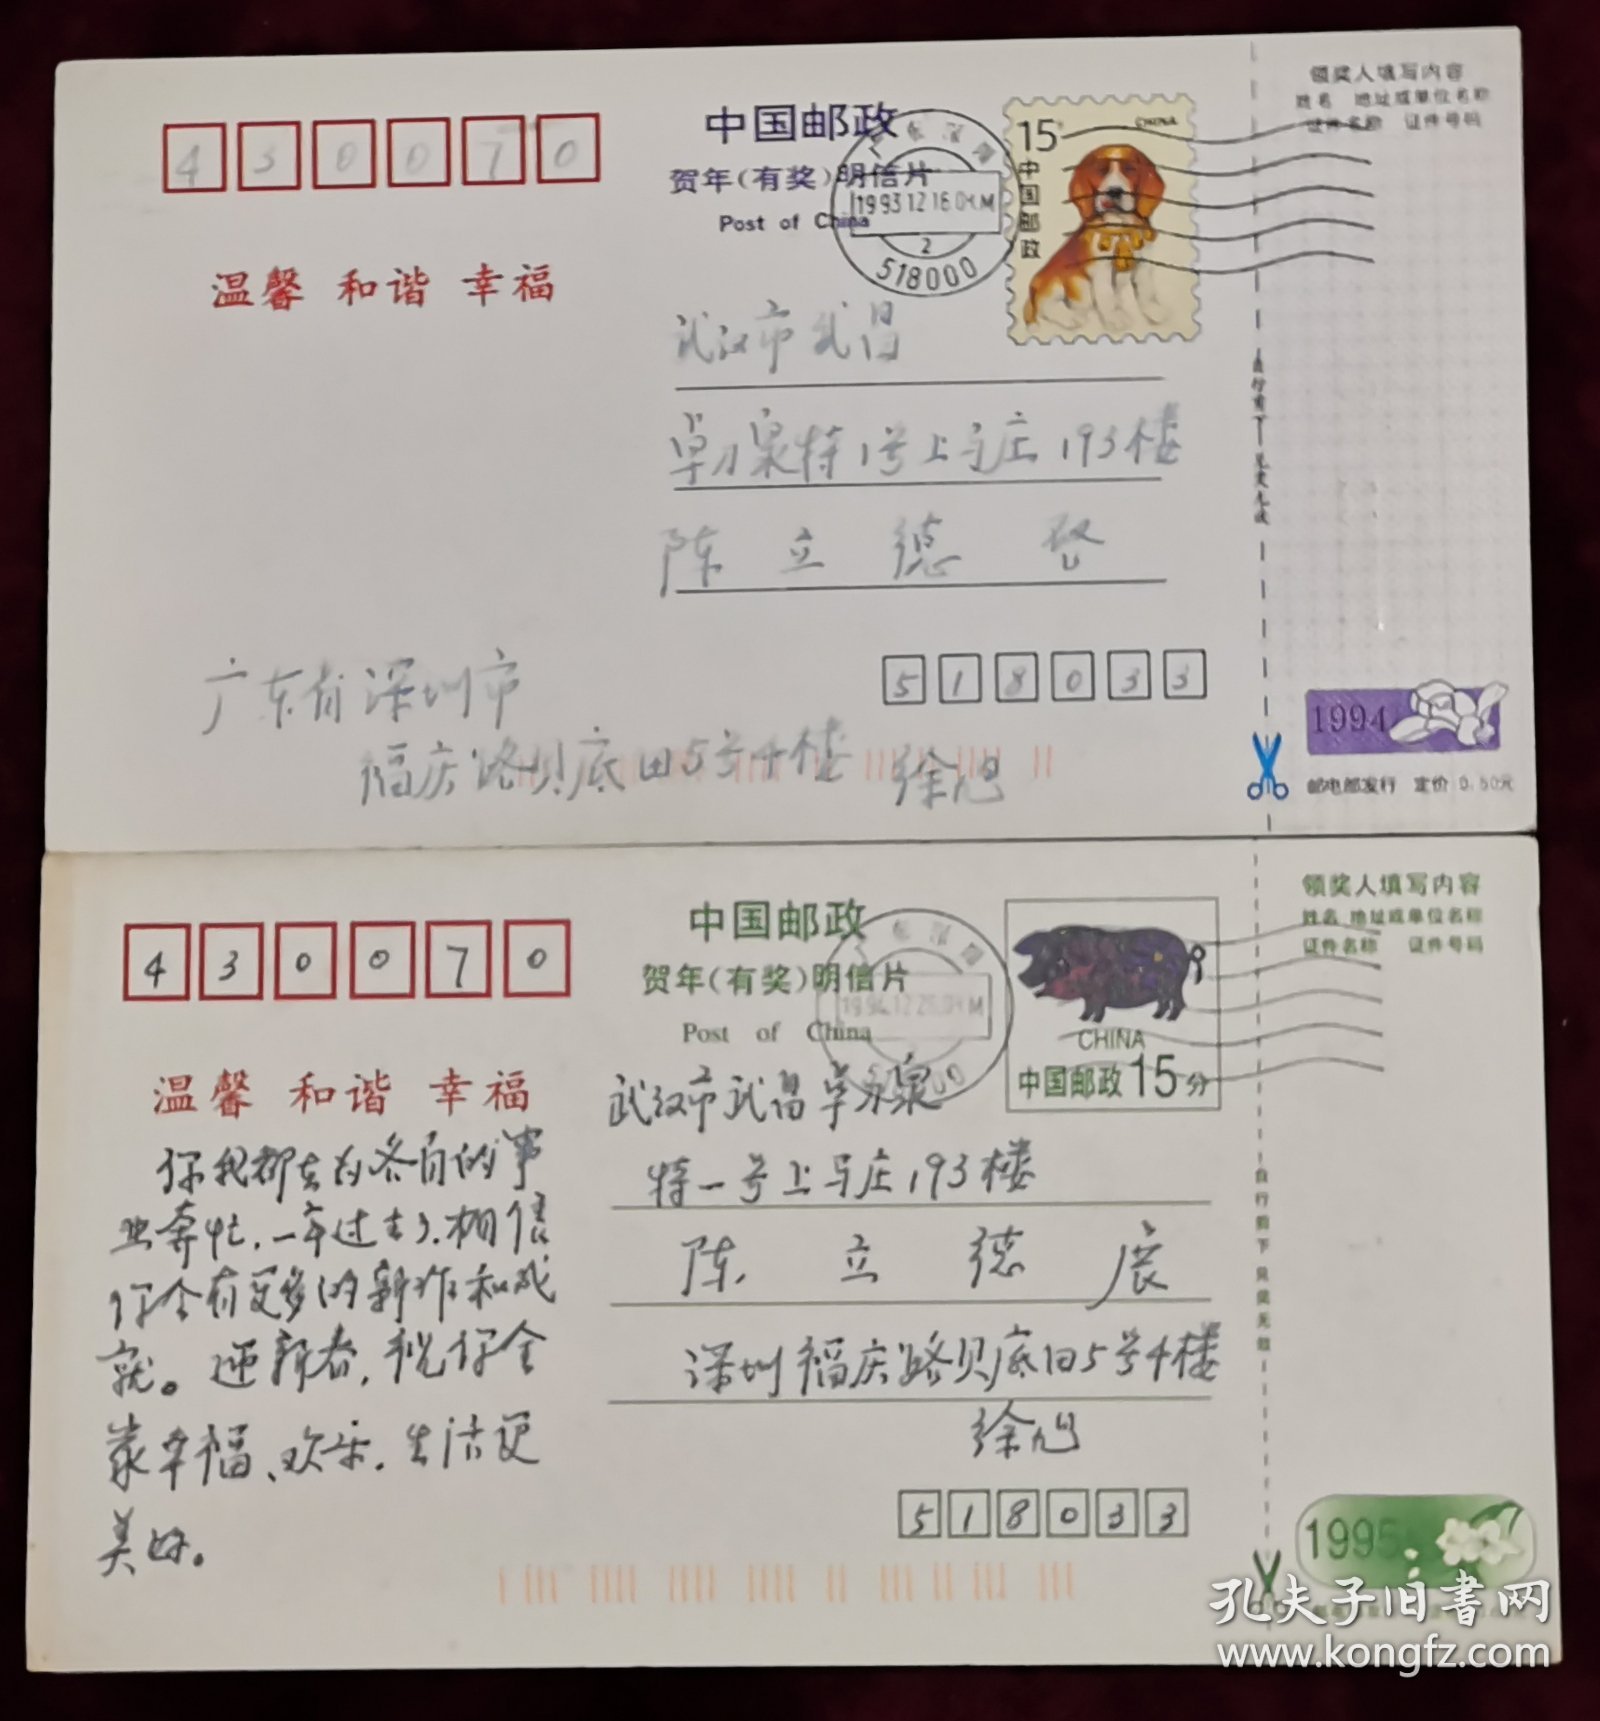 430070
中国邮政
贺年(有奖)明信片
Post of China
1993.12.16.0
2
518000
15
CHINA
中国邮政
领奖人填写内容
姓名 地址或单位名称
证件名称 证件号码
温馨 和谐 幸福
武汉市武昌
卓刀泉特1号上马庄193楼
陈立德启
518033
广东省深圳市
福庆路贝底田5号4楼 徐旭
1994
邮电部发行 定价 0.50元
430070
中国邮政
贺年(有奖)明信片
Post of China
CHINA
中国邮政15分
领奖人填写内容
姓名 地址或单位名称
证件名称 证件号码
温馨 和谐 幸福
你我都在为各自的事
业奔忙,一年过去了.相信
你会有更多的新作和成
就。迎新春,祝你全
家幸福、欢乐.生活更
美好。
武汉市武昌卓刀泉
特一号上马庄193楼
陈立德展
深圳福庆路贝底田5号4楼
徐旭
518033
1995
孔夫子旧书网
www.kongfz.com